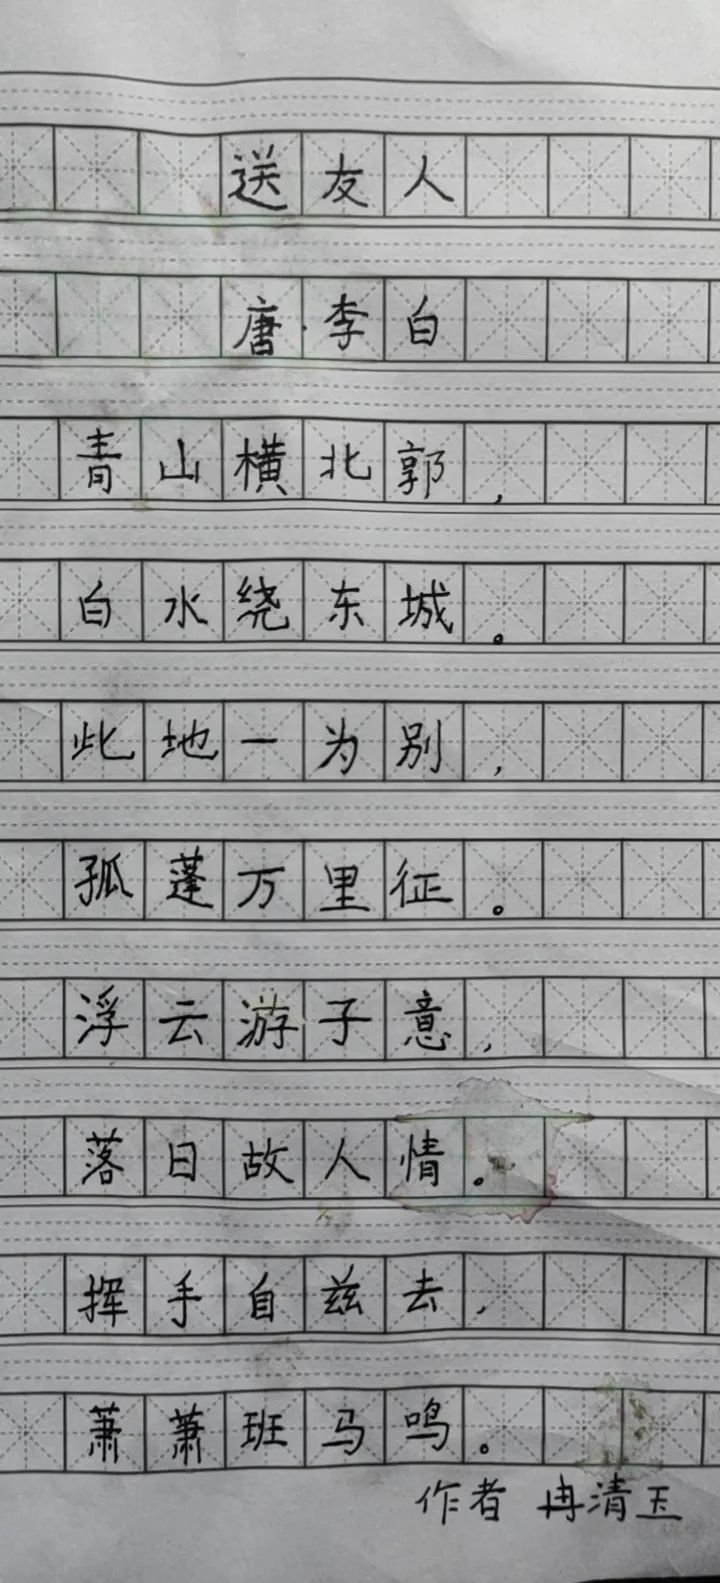 送友人
唐·李白
青山横北郭，
白水绕东城。
此地一为别，
孤蓬万里征。
浮云游子意，
落日故人情。
挥手自兹去，
萧萧班马鸣。
作者 冉清玉